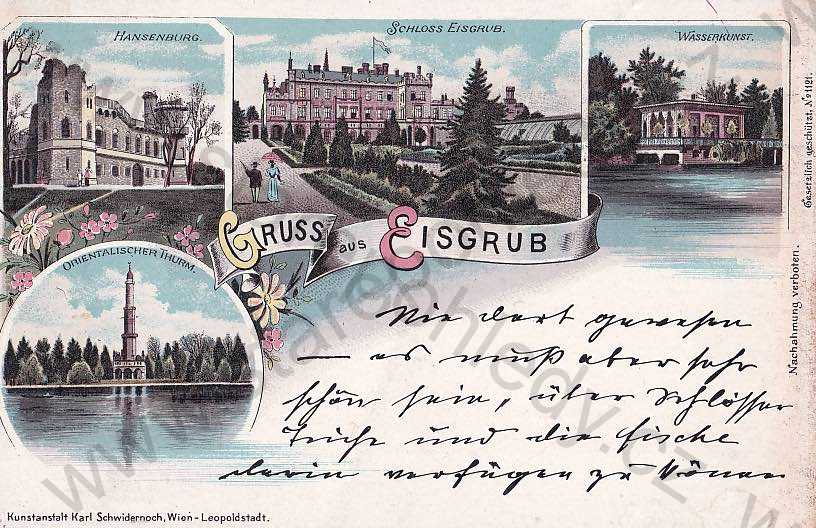 HANSENBURG.
SCHLOSS EISGRUB.
WASSERKUNST.
GRUSS aus EISGRUB
ORIENTALISCHER THURM.
Nie dort gewesen
— es muß aber sehr
schön sein, über Schlösser
Teiche und die Fische
darin verfügen zu können
Gesetzlich geschützt. No 1121.
Nachahmung verboten.
Kunstanstalt Karl Schwidernoch, Wien - Leopoldstadt.
www.starepohledy.cz